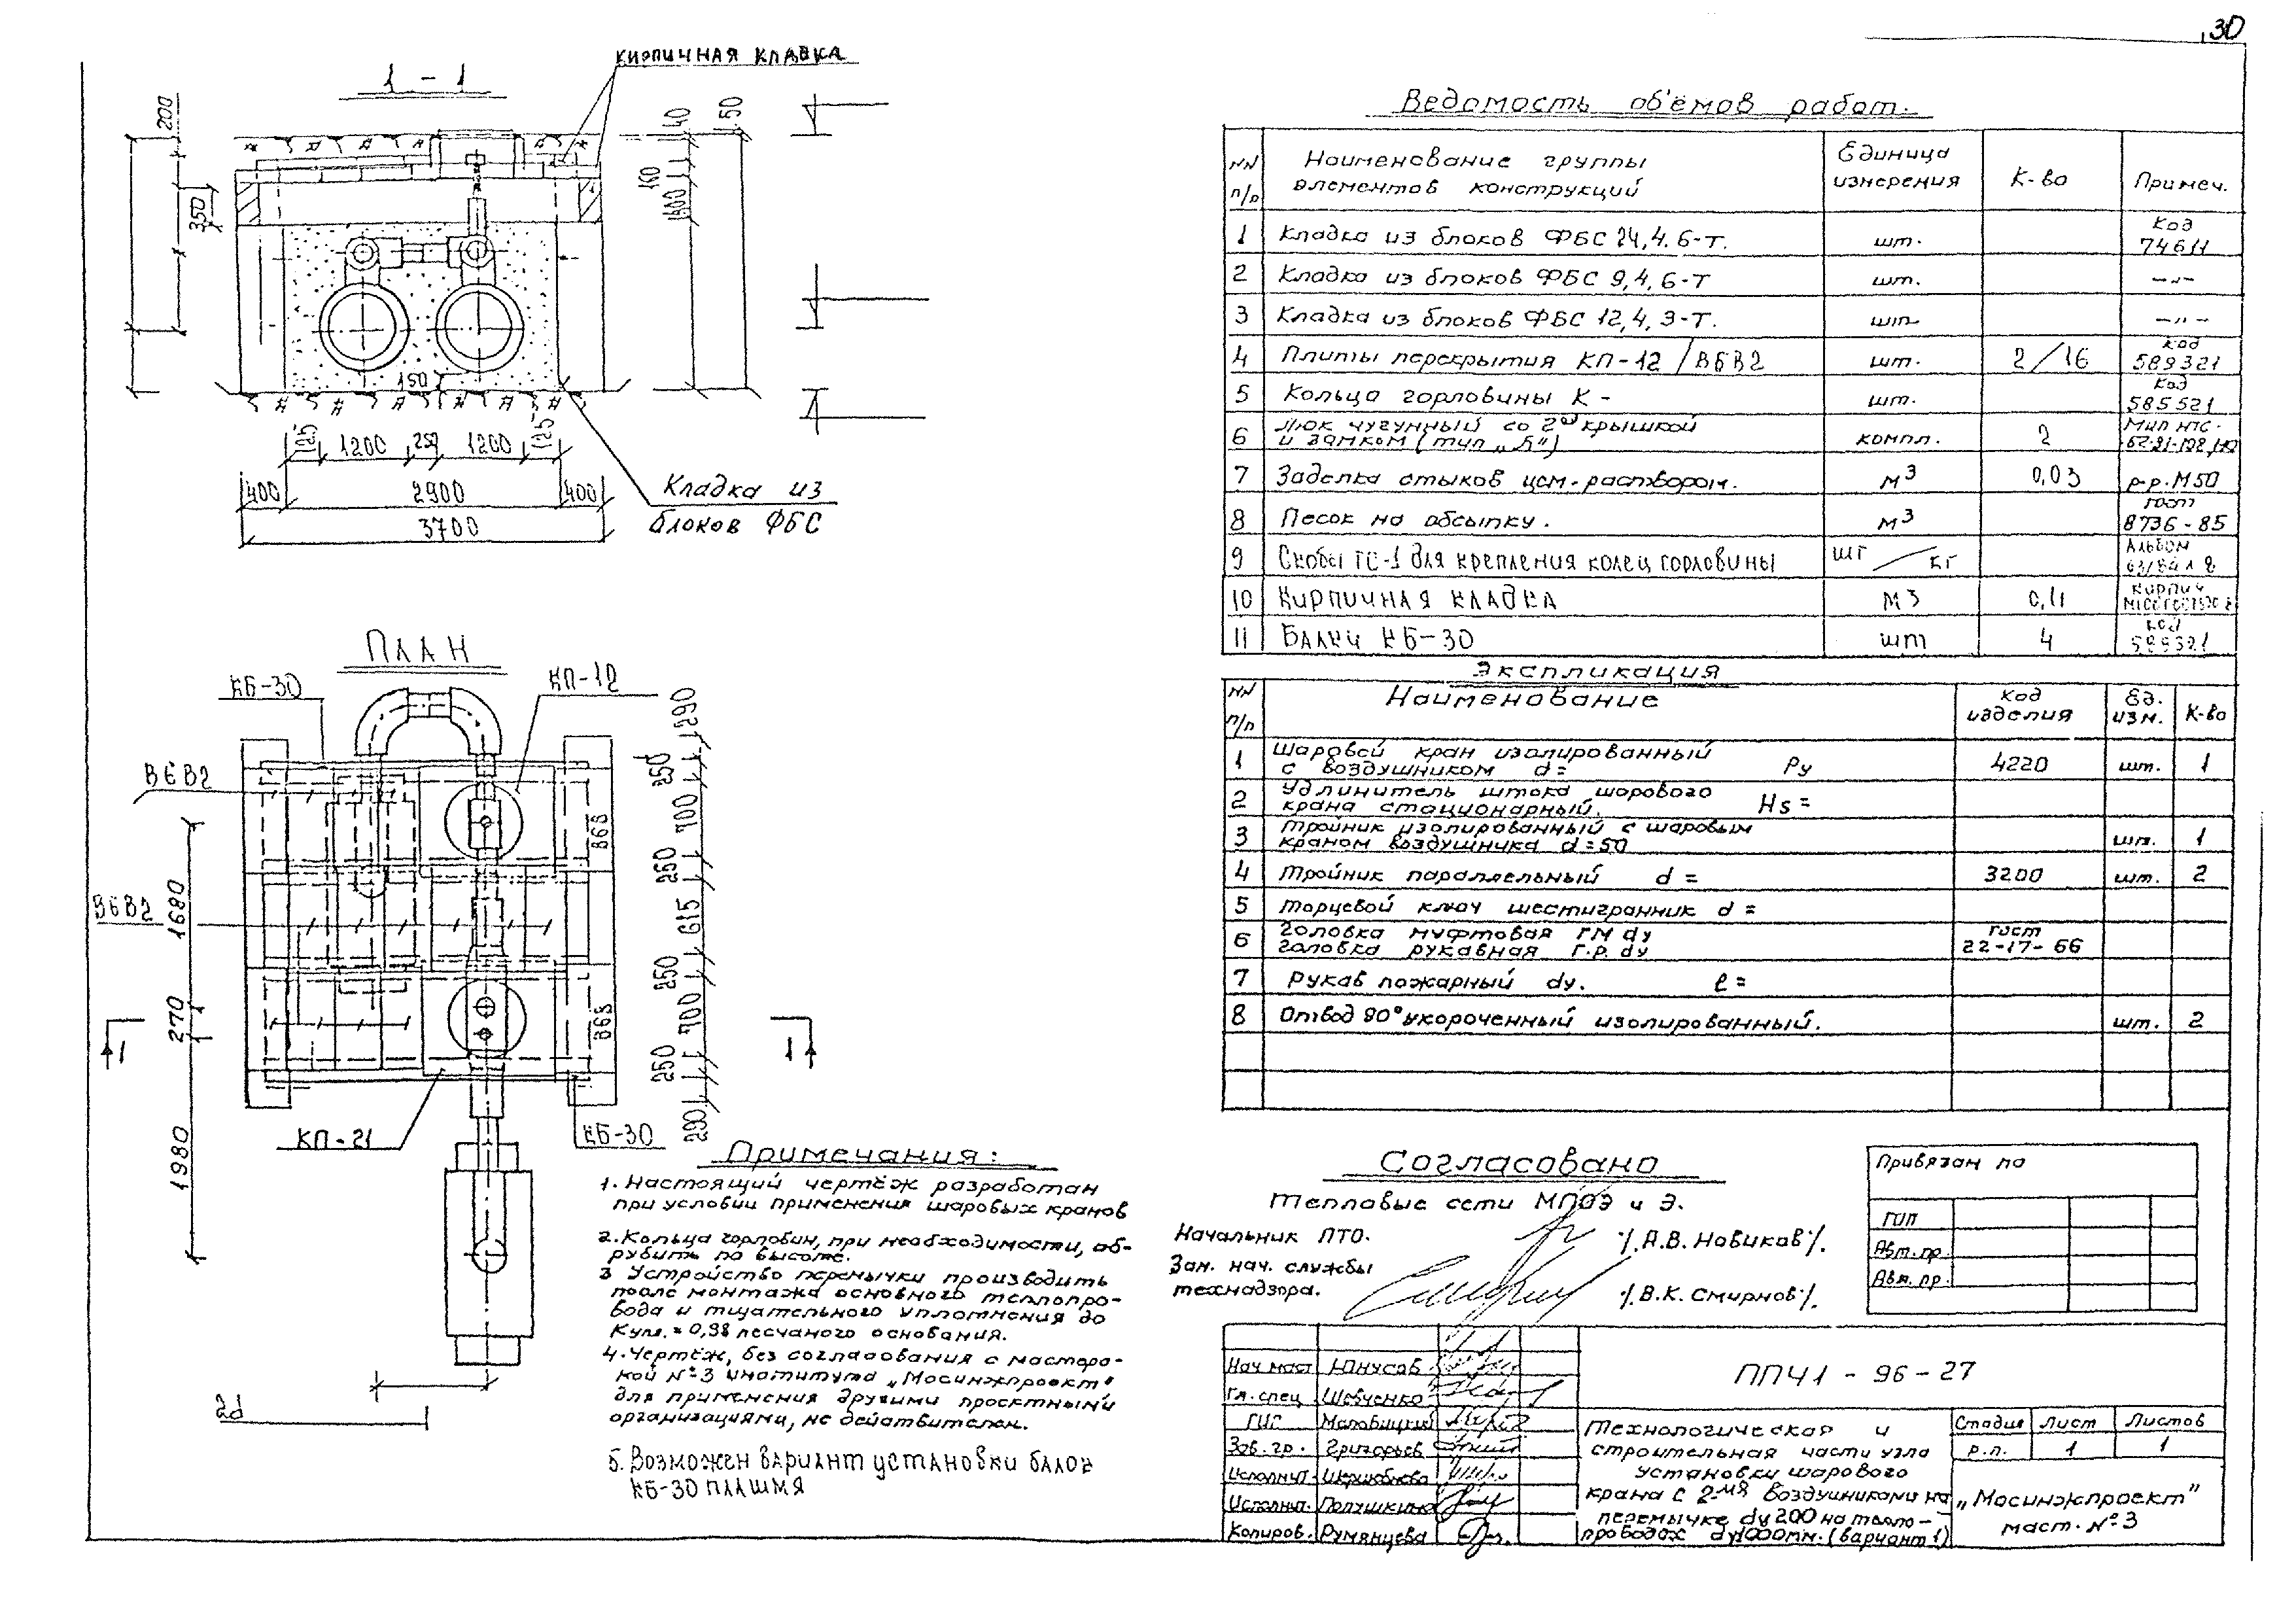 30
1 - 1
КИРПИЧНАЯ КЛАДКА
200
350
40
50
150
1200
250
1200
400
2900
400
3700
Кладка из
блоков ФБС
ПЛАН
КБ-30
КП-12
В6В2
В6В2
1680
270
1980
1
1
290
250
700
250
615
250
700
250
290
КП-21
КБ-30
2d
Примечания:
1. Настоящий чертёж разработан
при условии применения шаровых кранов
2. Кольца горловин, при необходимости, об-
рубить по высоте.
3 Устройство перемычки производить
после монтажа основного теплопро-
вода и тщательного уплотнения до
Купл. = 0,98 песчаного основания.
4. Чертёж, без согласования с мастерс-
кой №3 института „Мосинжпроект"
для применения другими проектными
организациями, не действителен.
5. Возможен вариант установки балок
КБ-30 плашмя
Ведомость об'ёмов работ.
NN п/п Наименование группы элементов конструкций Единица измерения К-во Примеч.
1 Кладка из блоков ФБС 24,4.6-Т. шт. Код 74611
2 Кладка из блоков ФБС 9,4,6-Т шт. —〃—
3 Кладка из блоков ФБС 12,4,3-Т. шт —〃—
4 Плиты перекрытия КП-12 / В6В2 шт. 2/16 код 589321
5 Кольца горловины К- шт. Код 585521
6 Люк чугунный со 2ой крышкой и замком (тип компл. 2
7 Заделка стыков цем. раствором. м3 0,03 р-р. М50
8 Песок на обсыпку. м3 гост 8736-85
9 Скобы ГС-1 для крепления колец горловины шт / кг Альбом
10 Кирпичная кладка м3 0,11 кирпич
11 Балки КБ-30 шт 4 код 589321
Экспликация
NN п/п Наименование Код изделия Ед. изм. К-во
1 Шаровой кран изолированный с воздушником d= Ру 4220 шт. 1
2 Удлинитель штока шарового крана стационарный. Hs=
3 Тройник изолированный с шаровым краном воздушника d=50 шт. 1
4 Тройник параллельный d= 3200 шт. 2
5 Торцевой ключ шестигранник d=
6 Головка муфтовая ГМ dy головка рукавная Г.Р. dy Гост 22-17-66
7 Рукав пожарный dy. ℓ=
8 Отвод 90° укороченный изолированный. шт. 2
Согласовано
Тепловые сети МПОЭ и Э.
Начальник ПТО. /.А.В. Новиков/.
Зам. нач. службы
технадзора. /.В.К. Смирнов/.
Привязан по
ГИП
Авт. пр.
Авт. пр.
Нач маст Юнусов
Гл. спец Шевченко
ГИП
Зав. гр. Григорьев
Исполнил
Исполнил.
Копиров. Румянцева
ППЧ1 - 96 - 27
Технологическая и
строительная части узла
установки шарового
крана с 2-мя воздушниками на
перемычке dy200 на тепло-
проводах dy1000мм. (вариант 1)
Стадия Лист Листов
р.п. 1 1
„Мосинжпроект"
маст. №3